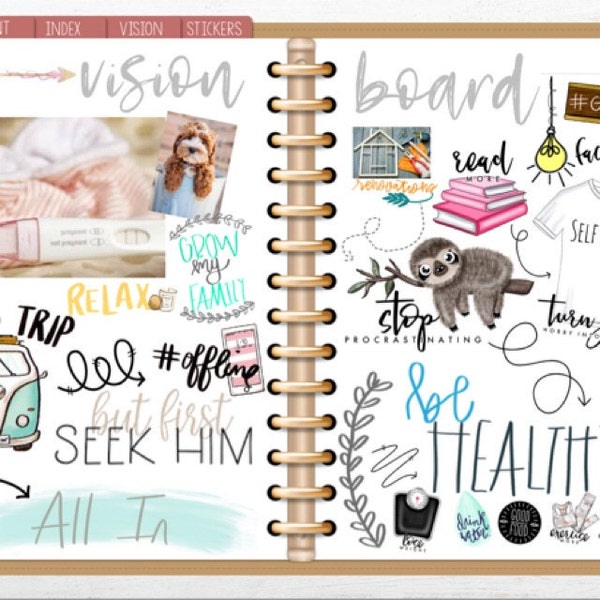 INDEX
VISION
STICKERS
vision
GROW
my
FAMILY
RELAX
TRIP
#offline
but first
SEEK HIM
All In
board
renovations
read
MORE
SELF
stop
PROCRASTINATING
turn
be
HEALTH
lose
WEIGHT
drink
water
GOOD
FOOD
exercise
MORE